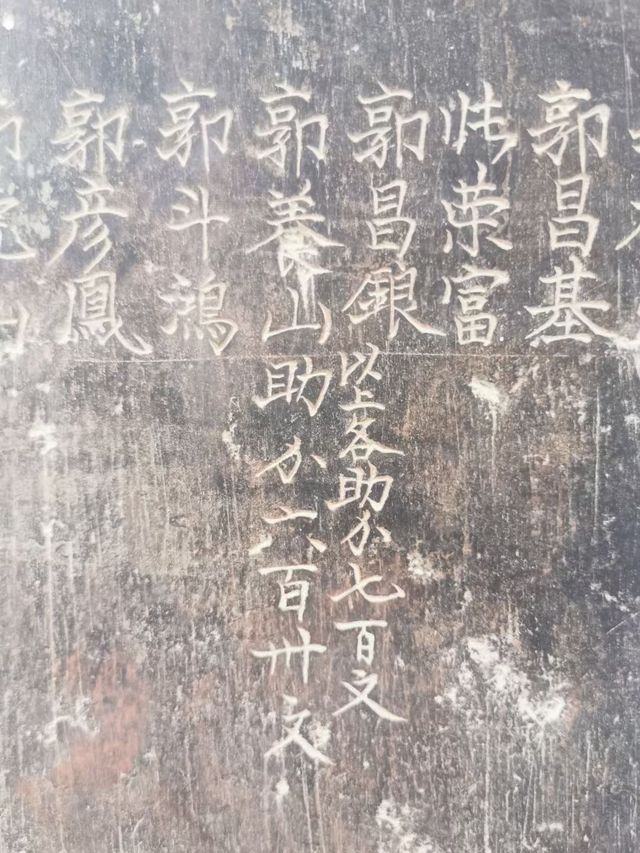 郭昌基
荣富
郭昌銀以上各助七百文
郭養山助六百卅文
郭斗鴻
郭彦鳳